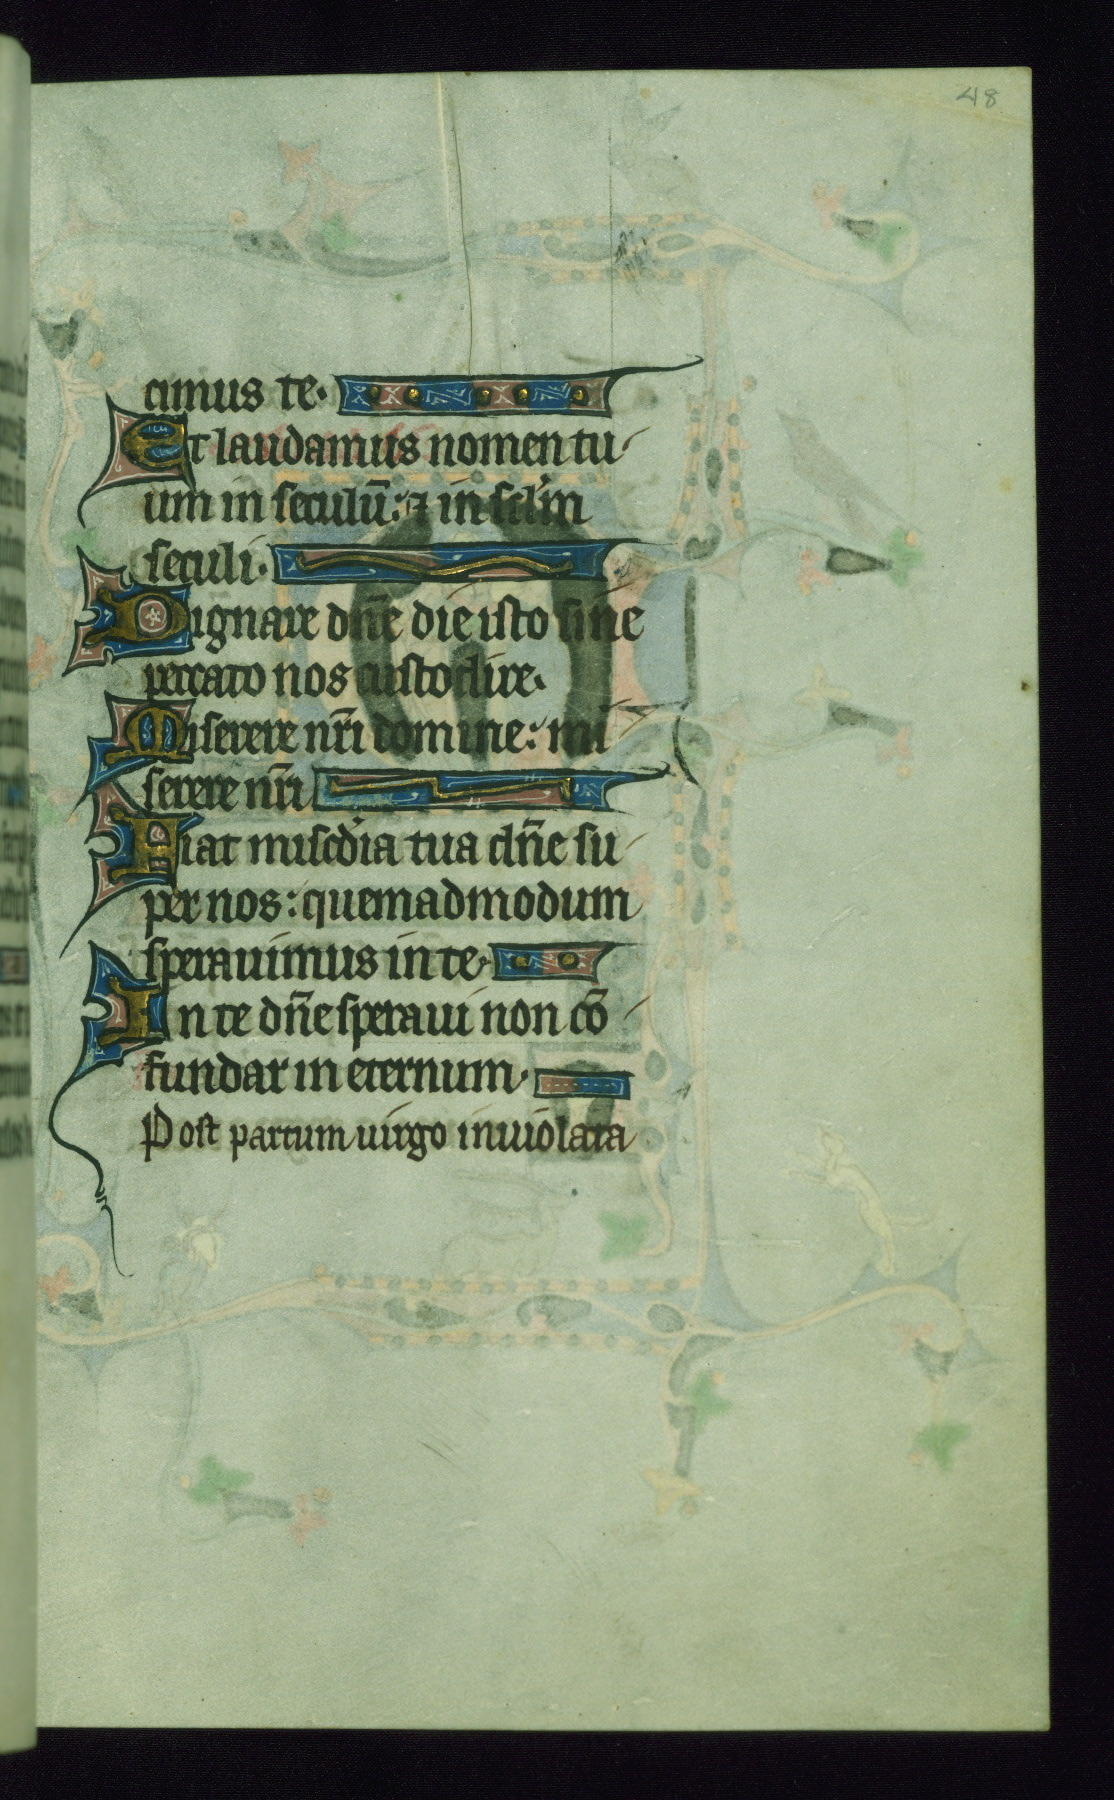 48
cimus te.
Et laudamus nomen tu
um in seculū: ⁊ in sclm̄
seculi.
Dignare dn̄e die isto sine
peccato nos custodire.
Miserere nr̄i domine: mi
serere nr̄i
Fiat misc̄dia tua dn̄e su
per nos: quemadmodum
sperauimus in te
In te dn̄e speraui non cō
fundar in eternum.
Post partum uirgo inuiolata